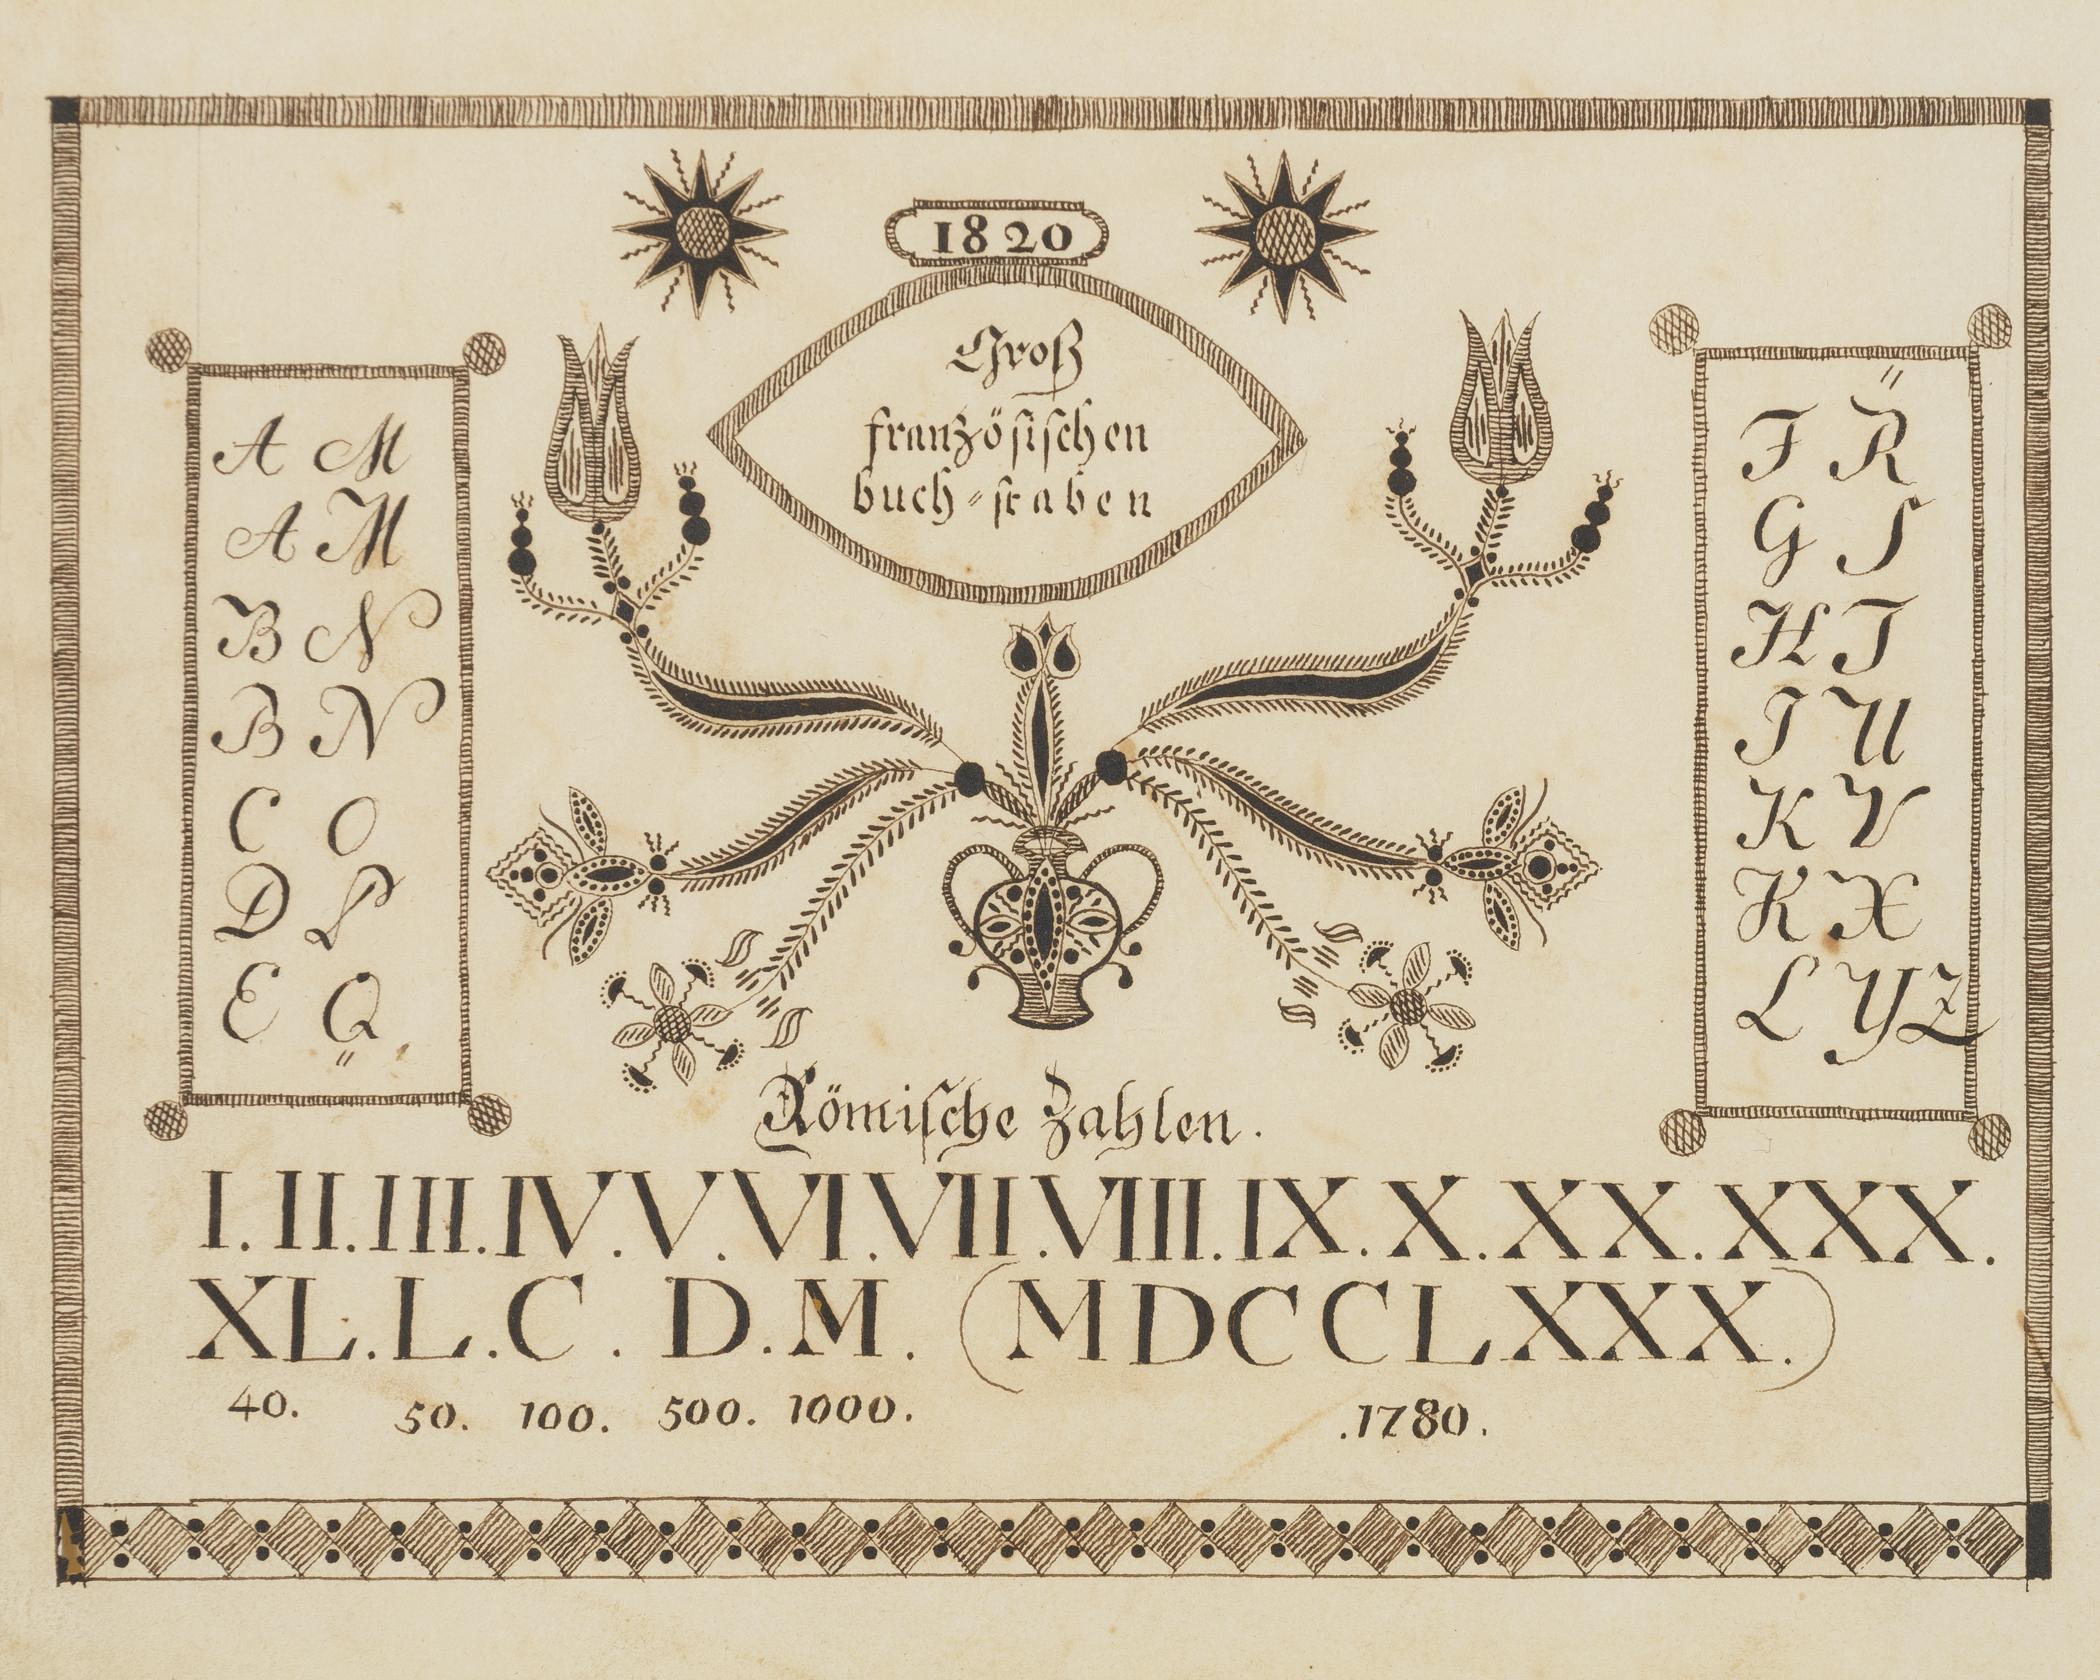 1820
Groß
französischen
buch⸗staben
A M
A M
B N
B N
C O
D P
E Q
F R
G S
H T
I U
K V
K X
L Y Z
Römische Zahlen.
I. II. III. IV. V. VI. VII. VIII. IX. X. XX. XXX.
XL. L. C. D. M. (MDCCLXXX.)
40. 50. 100. 500. 1000. .1780.